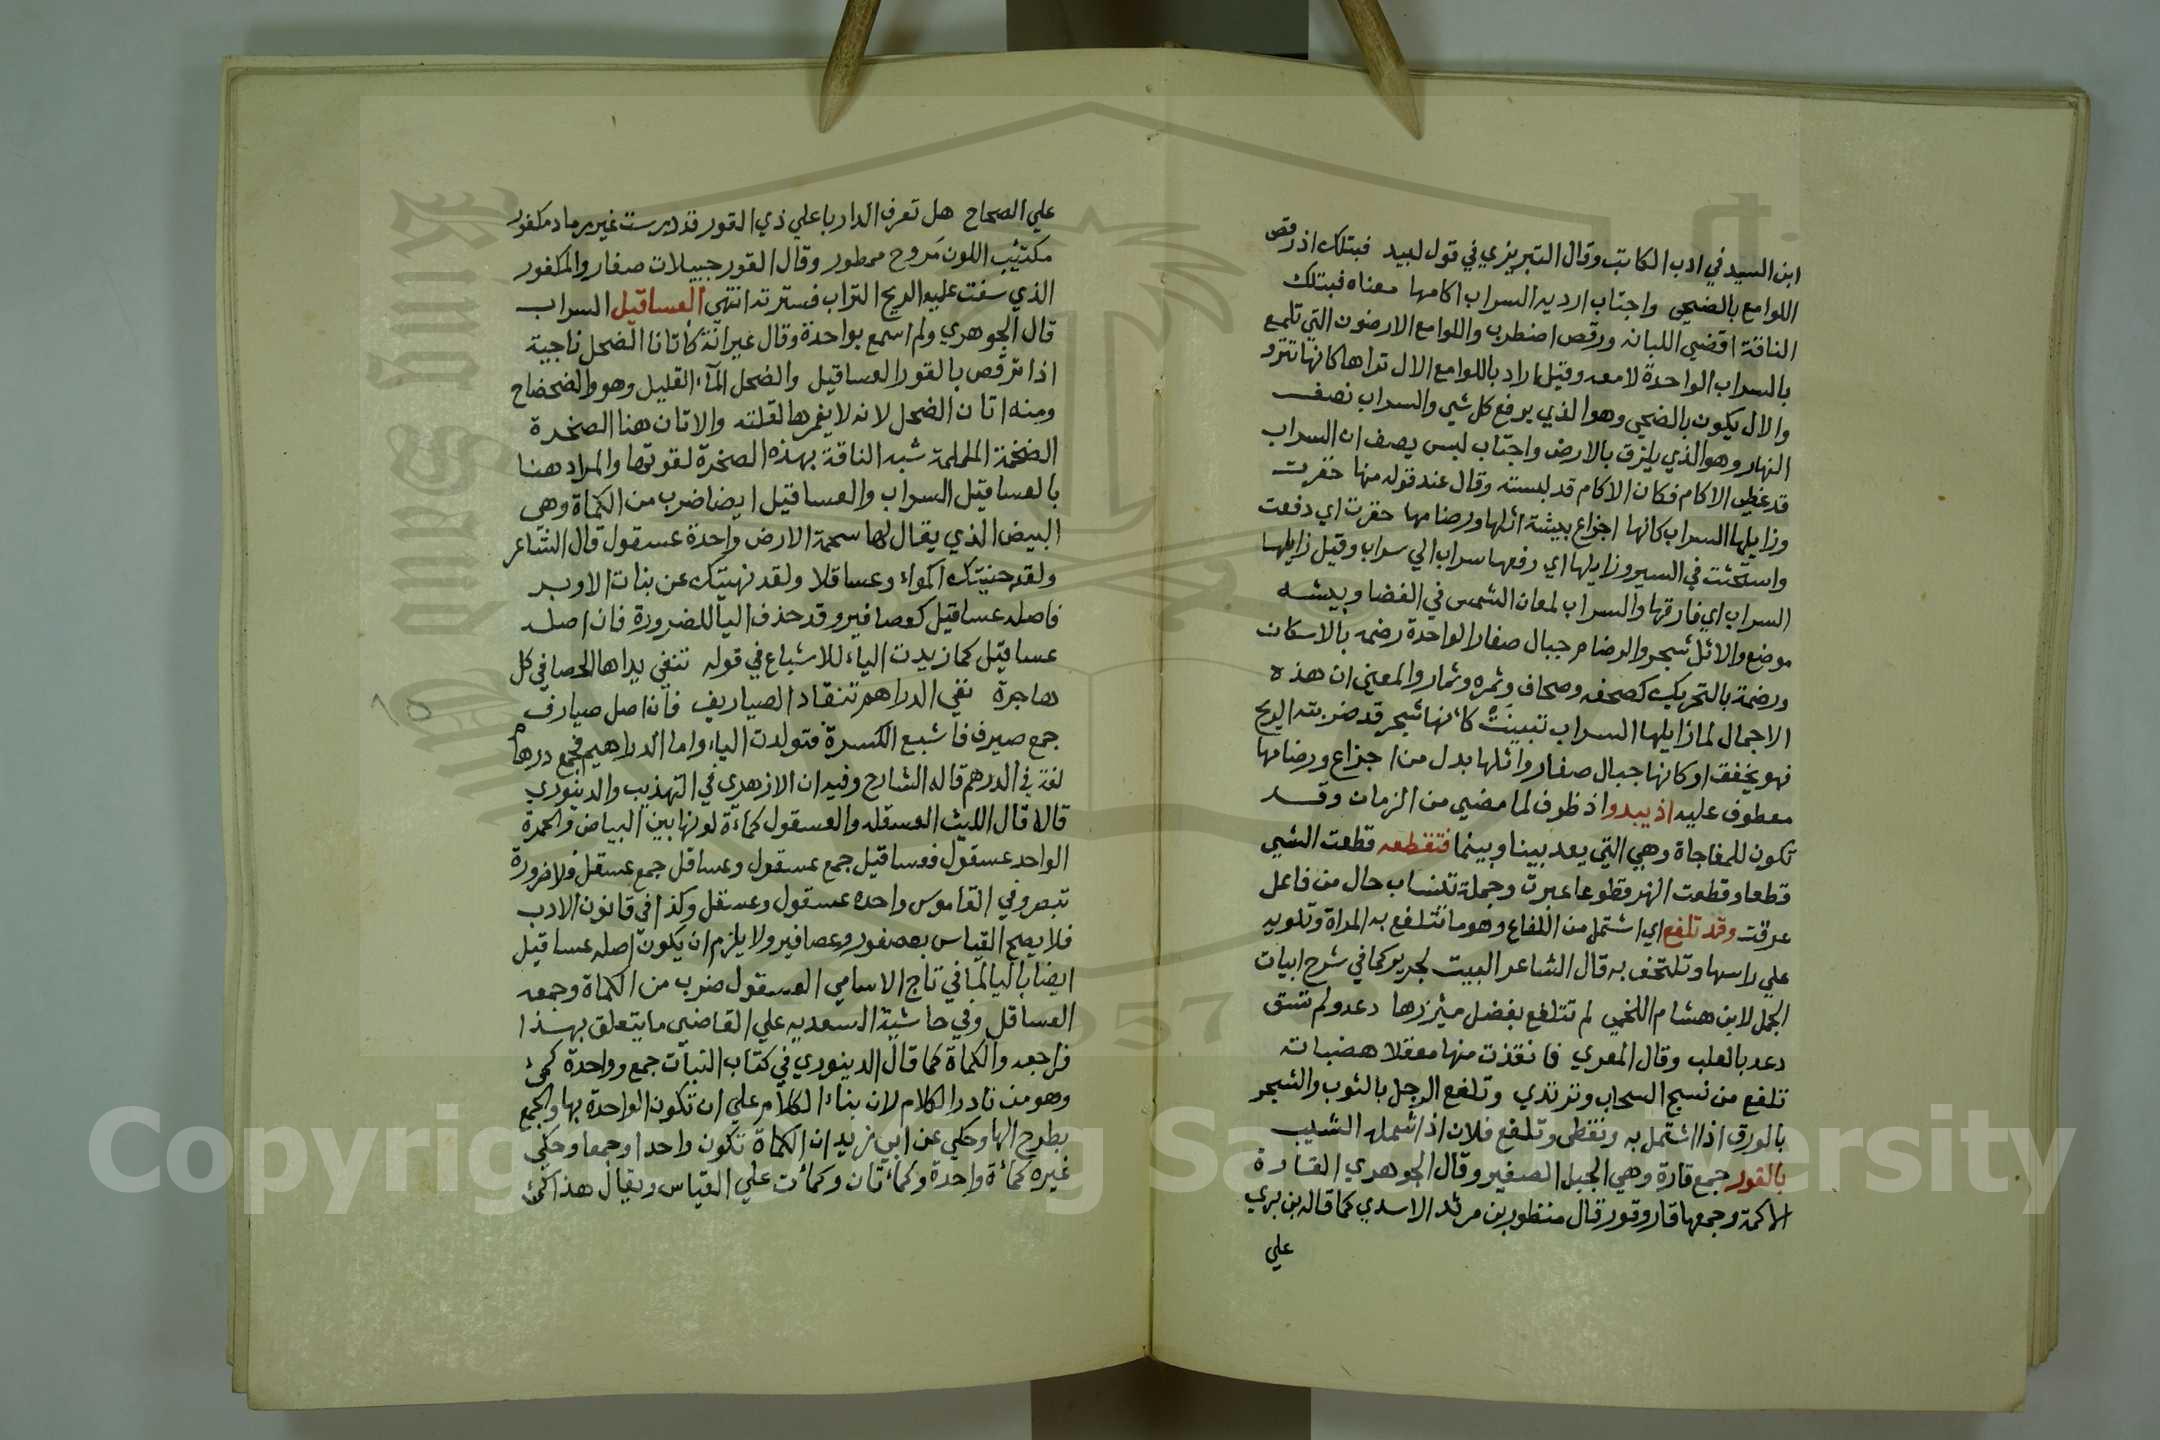 ابن السيد في ادب الكاتب وقال التبريزي في قول لبيد فبتلك اذ رقص
اللوامع بالضحي واجتاب اردية السراب اكامها معناه فبتلك
الناقة اقضي اللبانه ورقص اضطرب واللوامع الارضون التي تلمع
بالسراب الواحدة لامعه وقيل اراد باللوامع الال تراها كانها تنزو
والال يكون بالضحي وهو الذي يرفع كل شي والسراب نصف
النهار وهو الذي يلزق بالارض واجتاب لبس يصف ان السراب
قد غطي الاكام فكان الاكام قد لبسته وقال عند قوله منها حفزت
وزايلها السراب كانها اجزاع بيشة اثلها ورضامها حفزت اي دفعت
واستحثت في السير وزايلها اي رفعها سراب الي سراب وقيل زايلها
السراب اي فارقها والسراب لمعان الشمس في الفضا وبيشه
موضع والاثل شجر والرضام جبال صغار الواحدة رضمه بالاسكان
ورضمة بالتحريك كصحفه وصحاف وثمره وثمار والمعني ان هذه
الاجمال لما زايلها السراب تبينت كانها شجر قد ضربته الريح
فهو يخفق او كانها جبال صغار واثلها بدل من اجزاع ورضامها
معطوف عليه اذ يبدو اذ ظرف لما مضي من الزمان وقد
تكون للمفاجاة وهي التي بعد بينا وبينما فتقطعه قطعت الشي
قطعا وقطعت النهر قطوعا عبرت وجملة تنساب حال من فاعل
عرقت وقد تلفع اي اشتمل من اللفاع وهو ما تتلفع به المراة وتلويه
علي راسها وتلتحف به قال الشاعر البيت لجرير كما في شرح ابيات
الجمل لابن هشام اللخمي لم تتلفع بفضل ميزرها دعد ولم تسق
دعد بالعلب وقال المعري فانقذت منها معقلا هضباته
تلفع من نسج السحاب وترتدي وتلفع الرجل بالثوب والشجر
بالورق اذا اشتمل به وتغطي وتلفع فلان اذا شمله الشيب
بالقور جمع قارة وهي الجبل الصغير وقال الجوهري القارة
الاكمة وجمعها قار وقور قال منظور بن مرثد الاسدي كما قاله بن بري
علي
علي الصحاح هل تعرف الدار باعلي ذي القور قد درست غير رماد مكفور
مكتئب اللون مروح ممطور وقال القور جبيلات صغار والمكفور
الذي سفت عليه الريح التراب فسترته انتهي العساقيل السراب
قال الجوهري ولم اسمع بواحدة وقال عيرانة كاتان الضحل ناجية
اذا ترقص بالقور العساقيل والضحل المآء القليل وهو الضحضاح
ومنه اتان الضحل لانه لا يغمرها لقلته والاتان هنا الصخرة
الضخمة الململمة شبه الناقة بهذه الصخرة لقوتها والمراد هنا
بالعساقيل السراب والعساقيل ايضا ضرب من الكماة وهي
البيض الذي يقال لها سحمة الارض واحدة عسقول قال الشاعر
ولقد جنيتك اكموا وعساقلا ولقد نهيتك عن بنات الاوبر
فاصله عساقيل كعصافير وقد حذف اليا للضرورة فان اصله
عساقيل كما زيدت الياء للاشباع في قوله تنفي يداها الحصا في كل
هاجرة نفي الدراهم تنقاد الصياريف فان اصل صيارف
جمع صيرف فاشبع الكسرة فتولدت الياء واما الدراهيم فجمع درهام
لغة في الدرهم قاله الشارح وفيه ان الازهري في التهذيب والدينوري
قالا قال الليث العسقله والعسقول كماءة لونها بين البياض والحمرة
الواحد عسقول فعساقيل جمع عسقول وعساقل جمع عسقل فلا ضرورة
تبصر وفي القاموس واحده عسقول وعسقل وكذا في قانون الادب
فلا يصح القياس بعصفور وعصافير ولا يلزم ان يكون اصله عساقيل
ايضا باليا لما في تاج الاسامي العسقول ضرب من الكماة وجمعه
العساقل وفي حاشية السعديه علي القاضي ما يتعلق بهذا
فراجعه والكماة كما قال الدينوري في كتاب النبات جمع وواحدة كمئ
وهو من نادر الكلام لان بناء الكلام علي ان تكون الواحدة بها والجمع
بطرح الها وحكي عن ابي زيد ان الكماة تكون واحدا وجمعا وحكي
غيره كمأة واحدة وكمأتان وكمأت علي القياس ويقال هذا اكمئ
٧٥
King Saud University
1957
Copyright © King Saud University